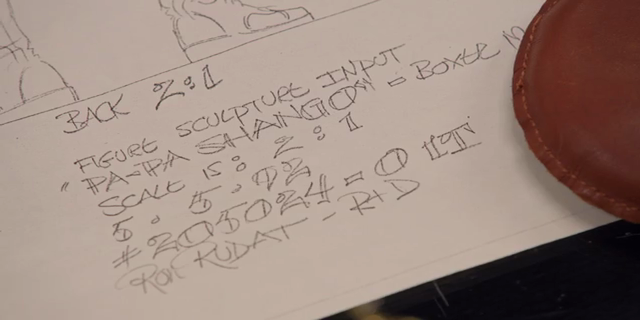 BACK 2:1
FIGURE SCULPTURE INPUT
"PA-PA SHANGO" = BOXER
SCALE IS: 2:1
5·5·92
#205024=0 1T
RON RUDAT - R+D